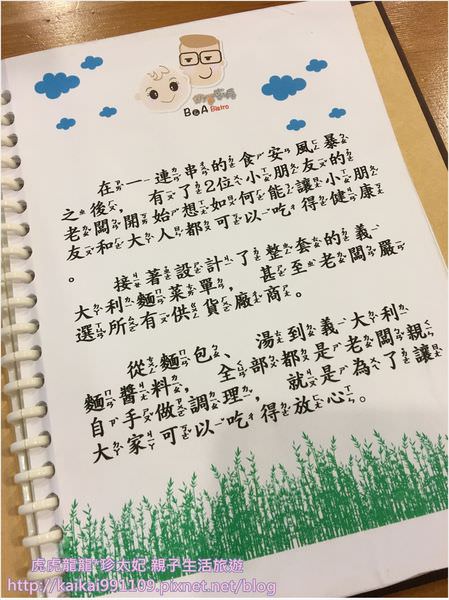 B&A Bistro
在一連串的食安風暴
之後，有了2位小朋友的
老闆開始想如何能讓小朋
友和大人都可以吃得健康
。
接著設計了整套的義
大利麵菜單，甚至老闆嚴
選所有供貨廠商。
從麵包、湯到義大利
麵醬料，全部都是老闆親
自手做調理，就是為了讓
大家可以吃得放心。
虎虎龍龍*珍太妃 親子生活旅遊
http://kaikai991109.pixnet.net/blog